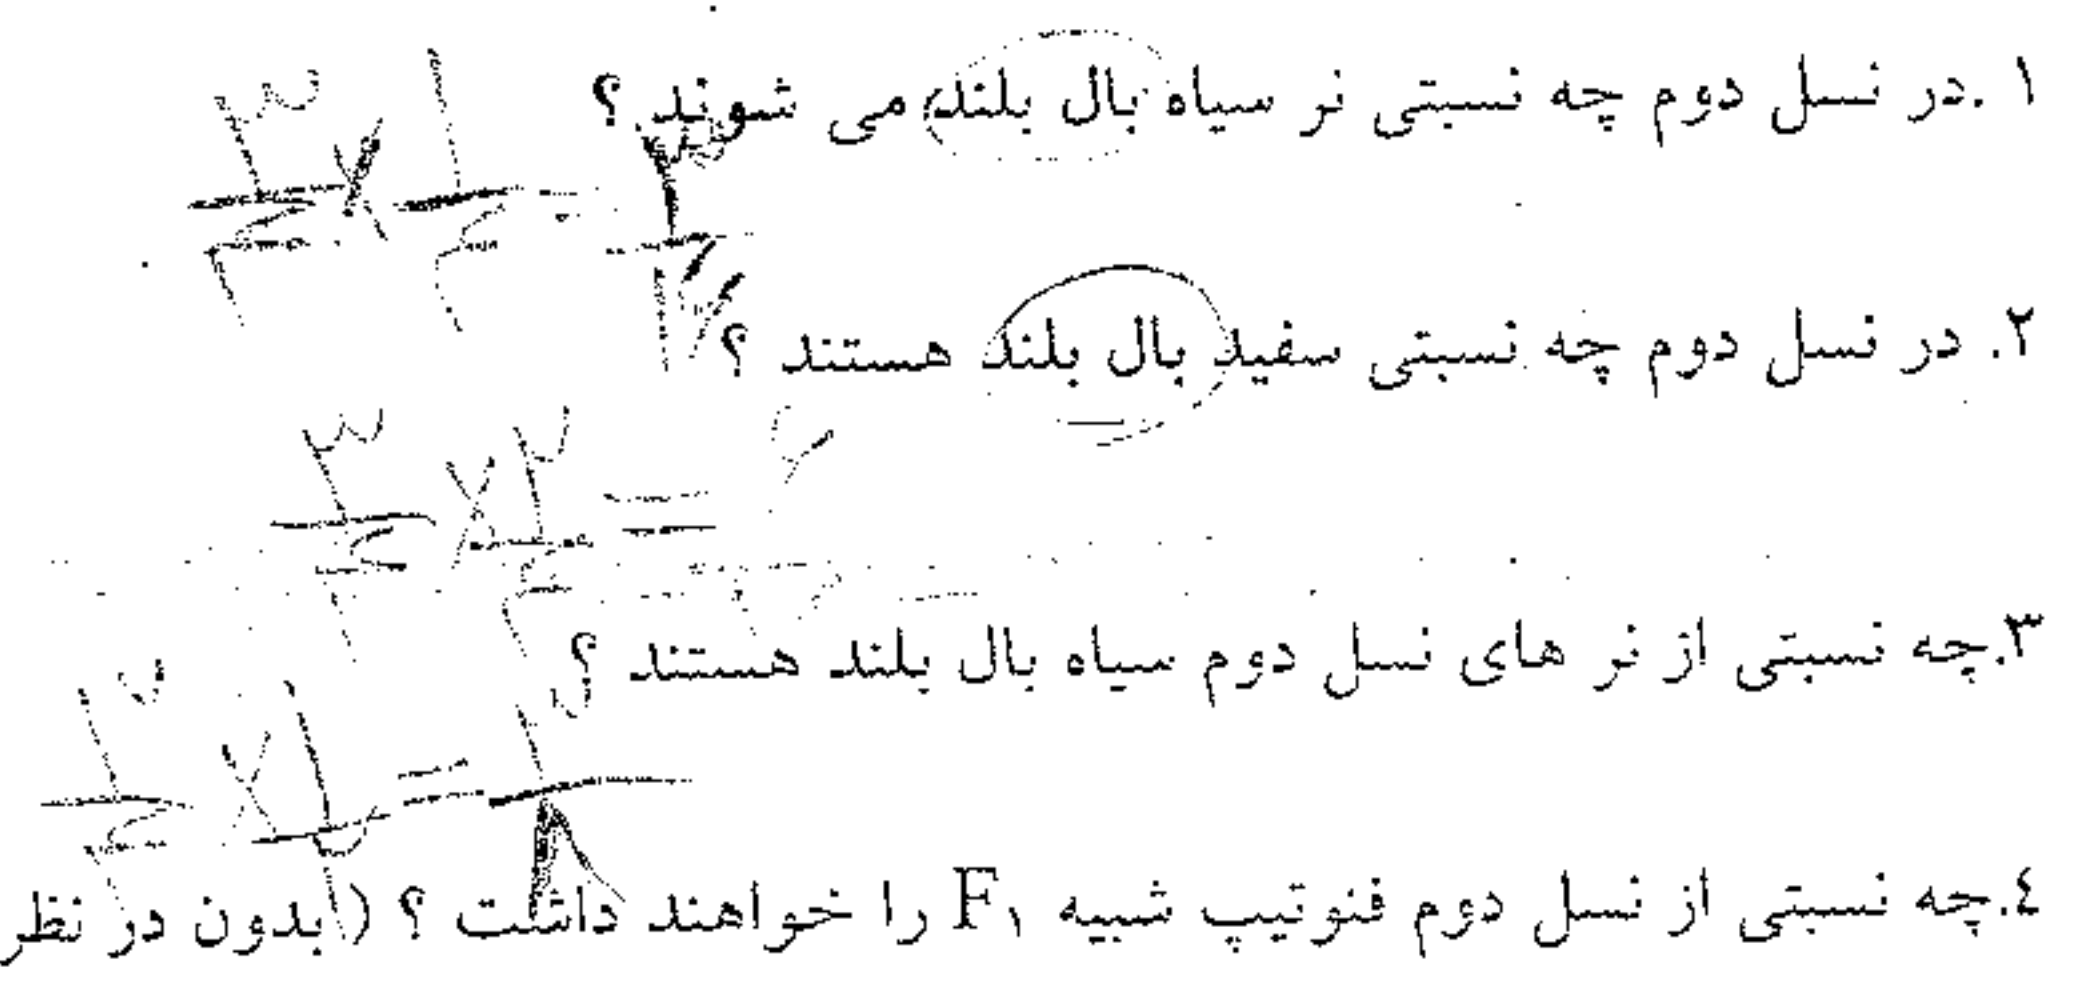 ۱ .در نسل دوم چه نسبتی نر سیاه بال بلند می شوند ؟
۳/۴ × ۱/۴ = ۳/۱۶
۲. در نسل دوم چه نسبتی سفید بال بلند هستند ؟
۳/۴ × ۲/۴ =
۳.چه نسبتی از نر های نسل دوم سیاه بال بلند هستند ؟
۳/۴ × ۱/۲ = ۳/۸
٤.چه نسبتی از نسل دوم فنوتیپ شبیه F۱ را خواهند داشت ؟ (بدون در نظر